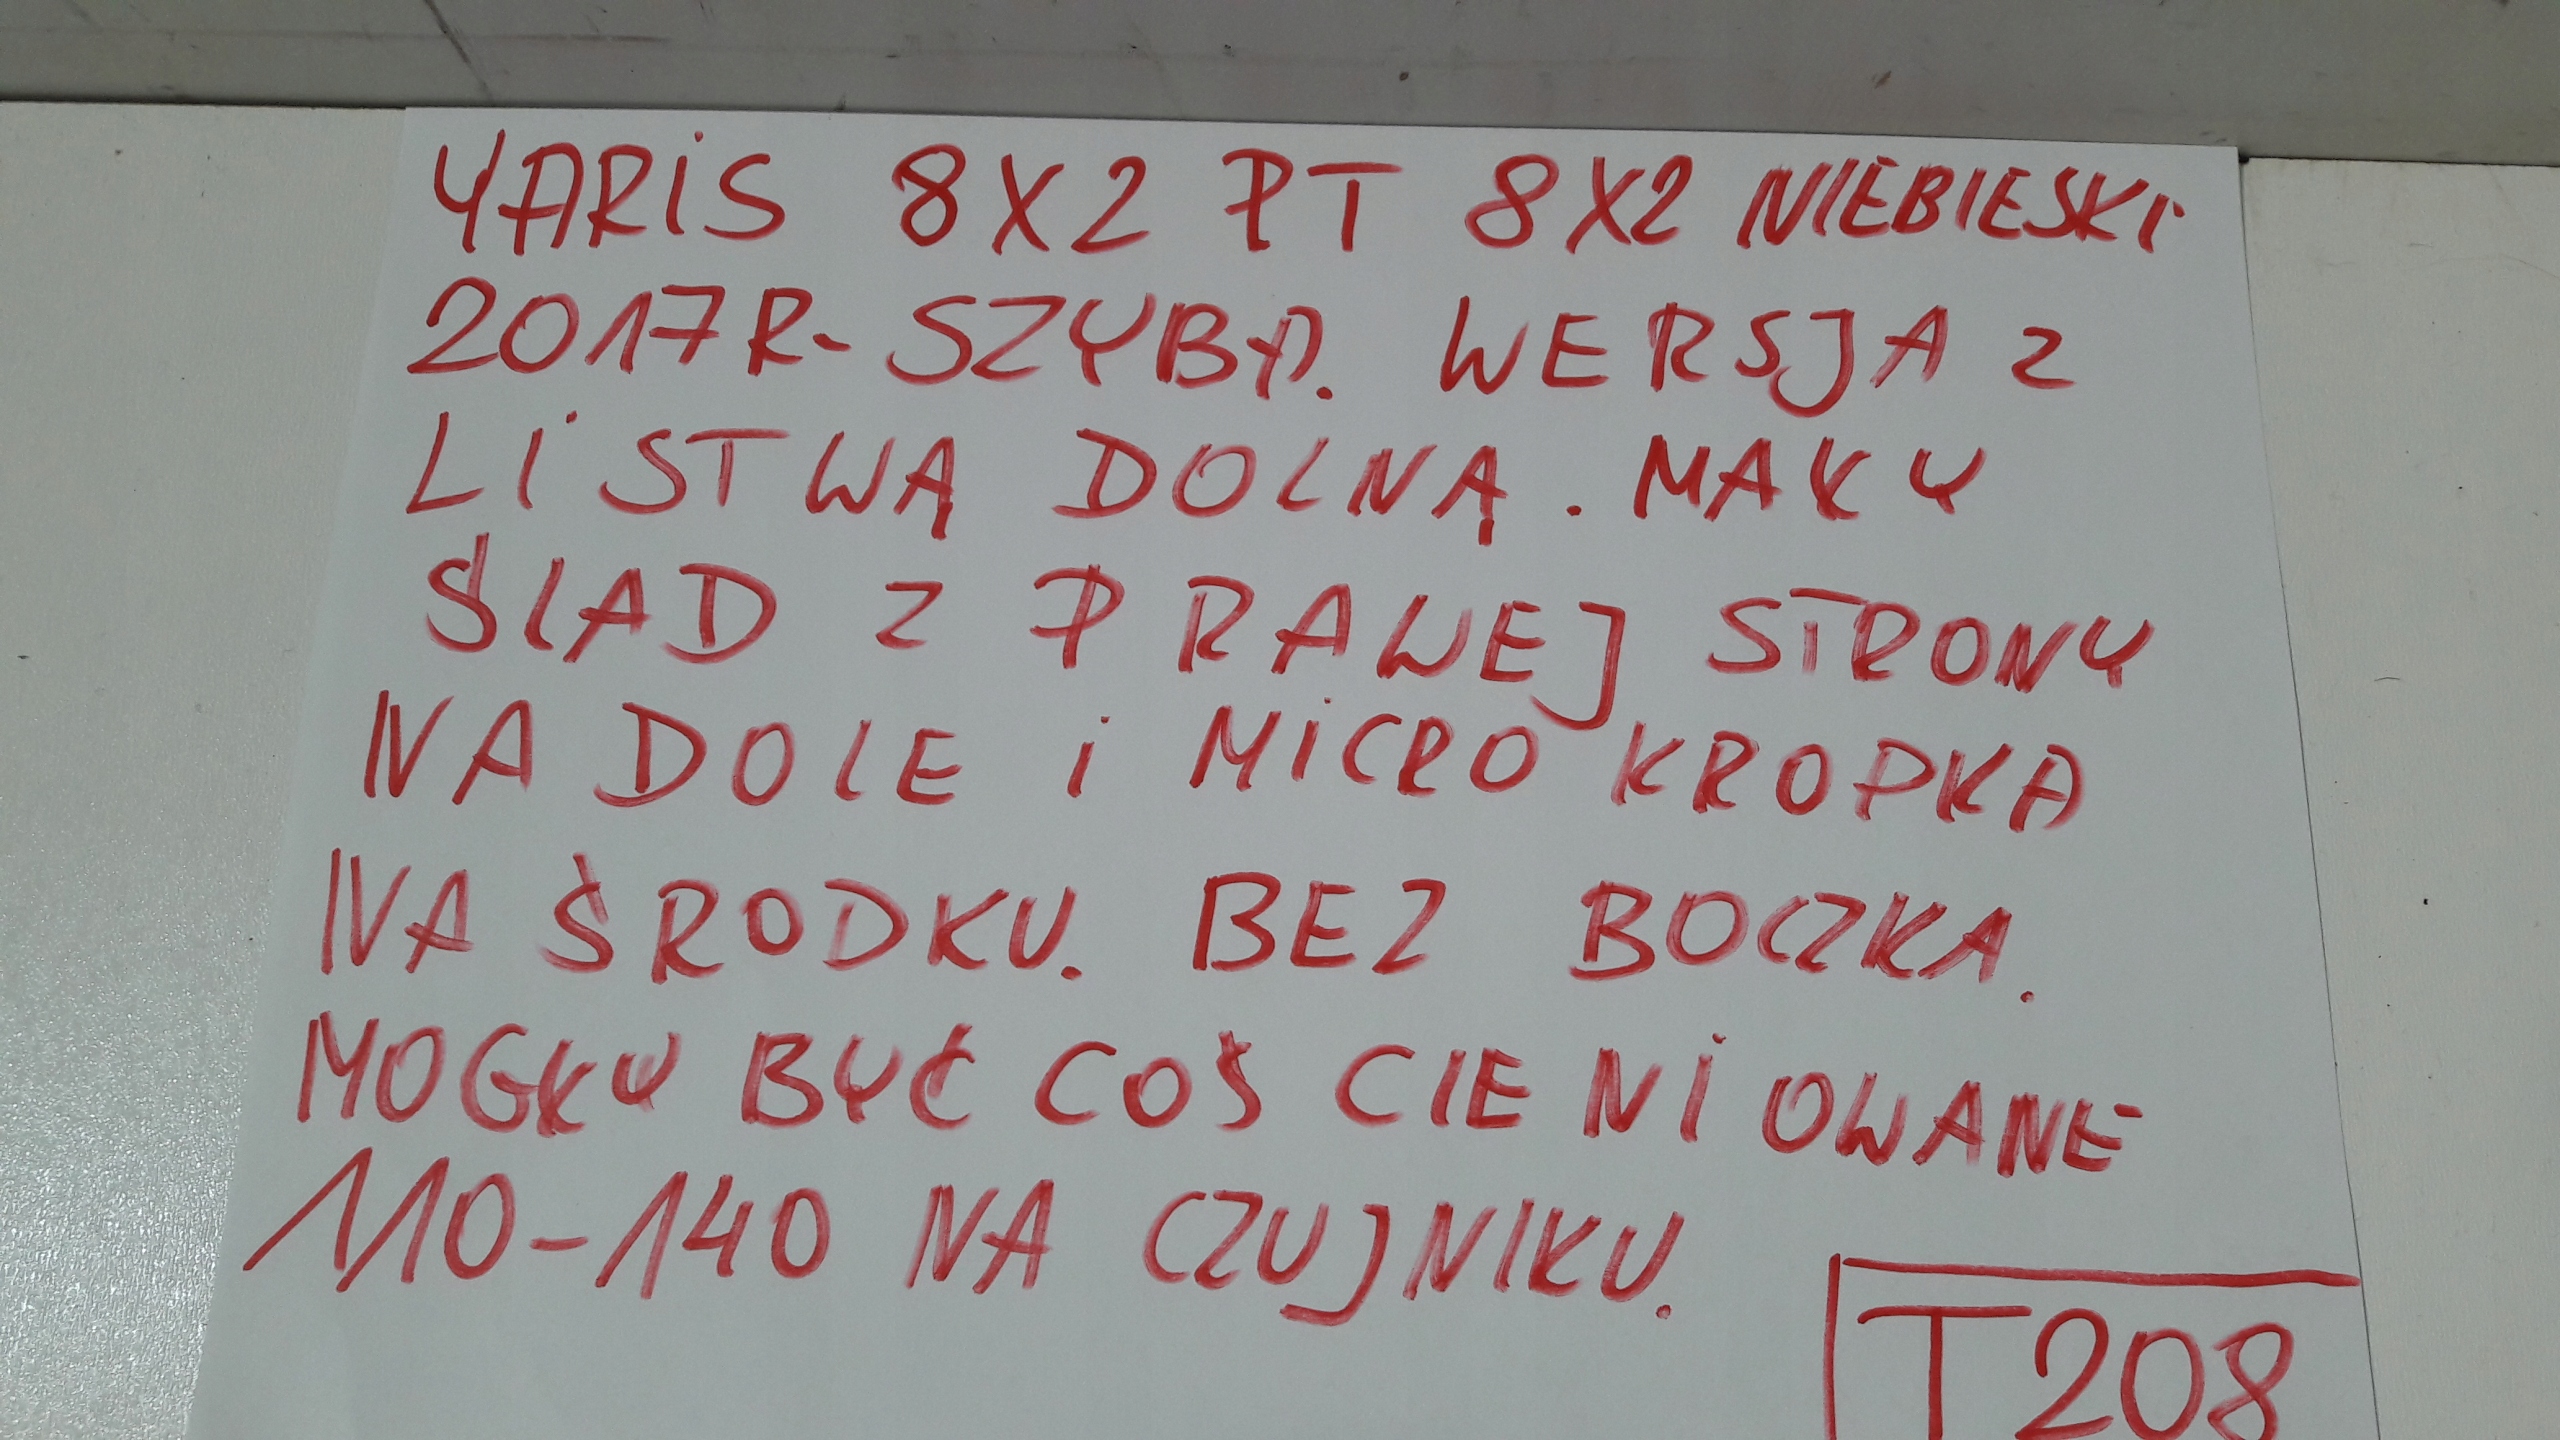 YARiS 8X2 PT 8X2 NIEBIESKI
2017R- SZYBA. WERSJA Z
LiSTWĄ DOLNĄ. MAŁY
ŚLAD Z PRAWEJ STRONY
NA DOLE i MiCRO KROPKA
NA ŚRODKU. BEZ BOCZKA.
MOGŁY BYĆ COŚ CIENiOWANE
110-140 NA CZUJNIKU.
T208